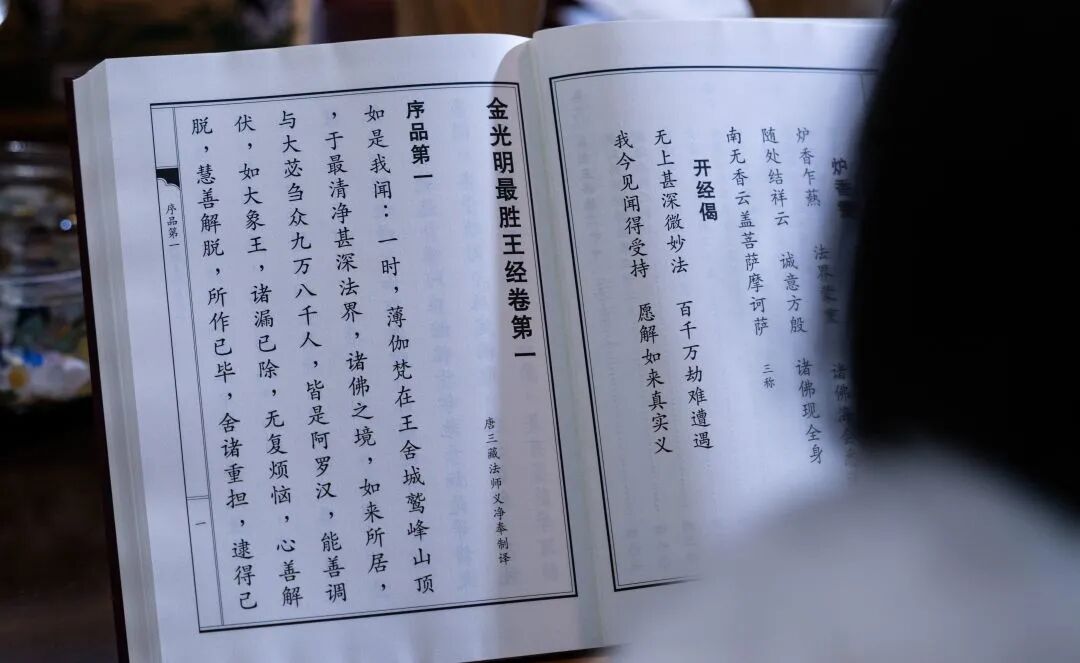 炉香
炉香乍爇 法界蒙 诸佛海
随处结祥云 诚意方殷 诸佛现全身
南无香云盖菩萨摩诃萨 三称
开经偈
无上甚深微妙法 百千万劫难遭遇
我今见闻得受持 愿解如来真实义
金光明最胜王经卷第一
唐三藏法师义净奉制译
序品第一
如是我闻：一时，薄伽梵在王舍城鹫峰山顶
，于最清净甚深法界，诸佛之境，如来所居，
与大苾刍众九万八千人，皆是阿罗汉，能善调
伏，如大象王，诸漏已除，无复烦恼，心善解
脱，慧善解脱，所作已毕，舍诸重担，逮得己
序品第一
一